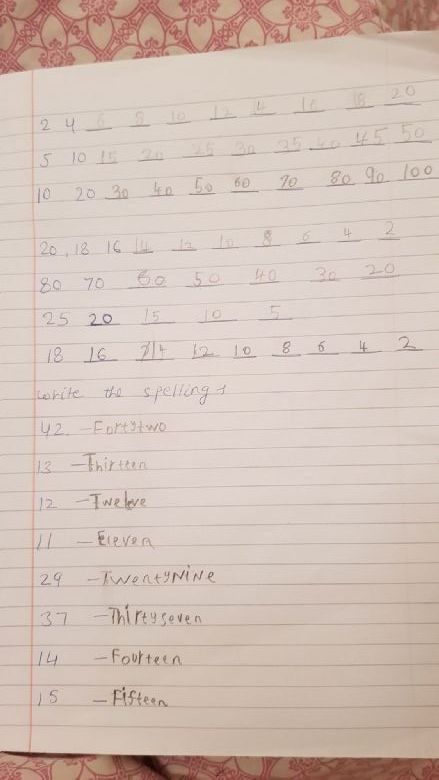 2 4 6 8 10 12 14 16 18 20
5 10 15 20 25 30 25 40 45 50
10 20 30 40 50 60 70 80 90 100
20, 18 16 14 12 10 8 6 4 2
80 70 60 50 40 30 20
25 20 15 10 5
18 16 14 12 10 8 6 4 2
write the spellings
42 - Fortytwo
13 - Thirteen
12 - Twelve
11 - Eleven
29 - TwentyNiNe
37 - Thirtyseven
14 - Fourteen
15 - Fifteen